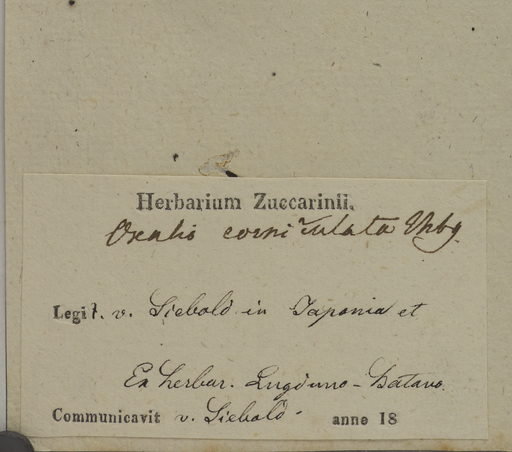 Herbarium Zuccarinii.
Oxalis corniculata Thbg.
Legit. v. Siebold in Japonia et
Ex herbar. Lugduno-Batavo.
Communicavit v. Siebold. anno 18